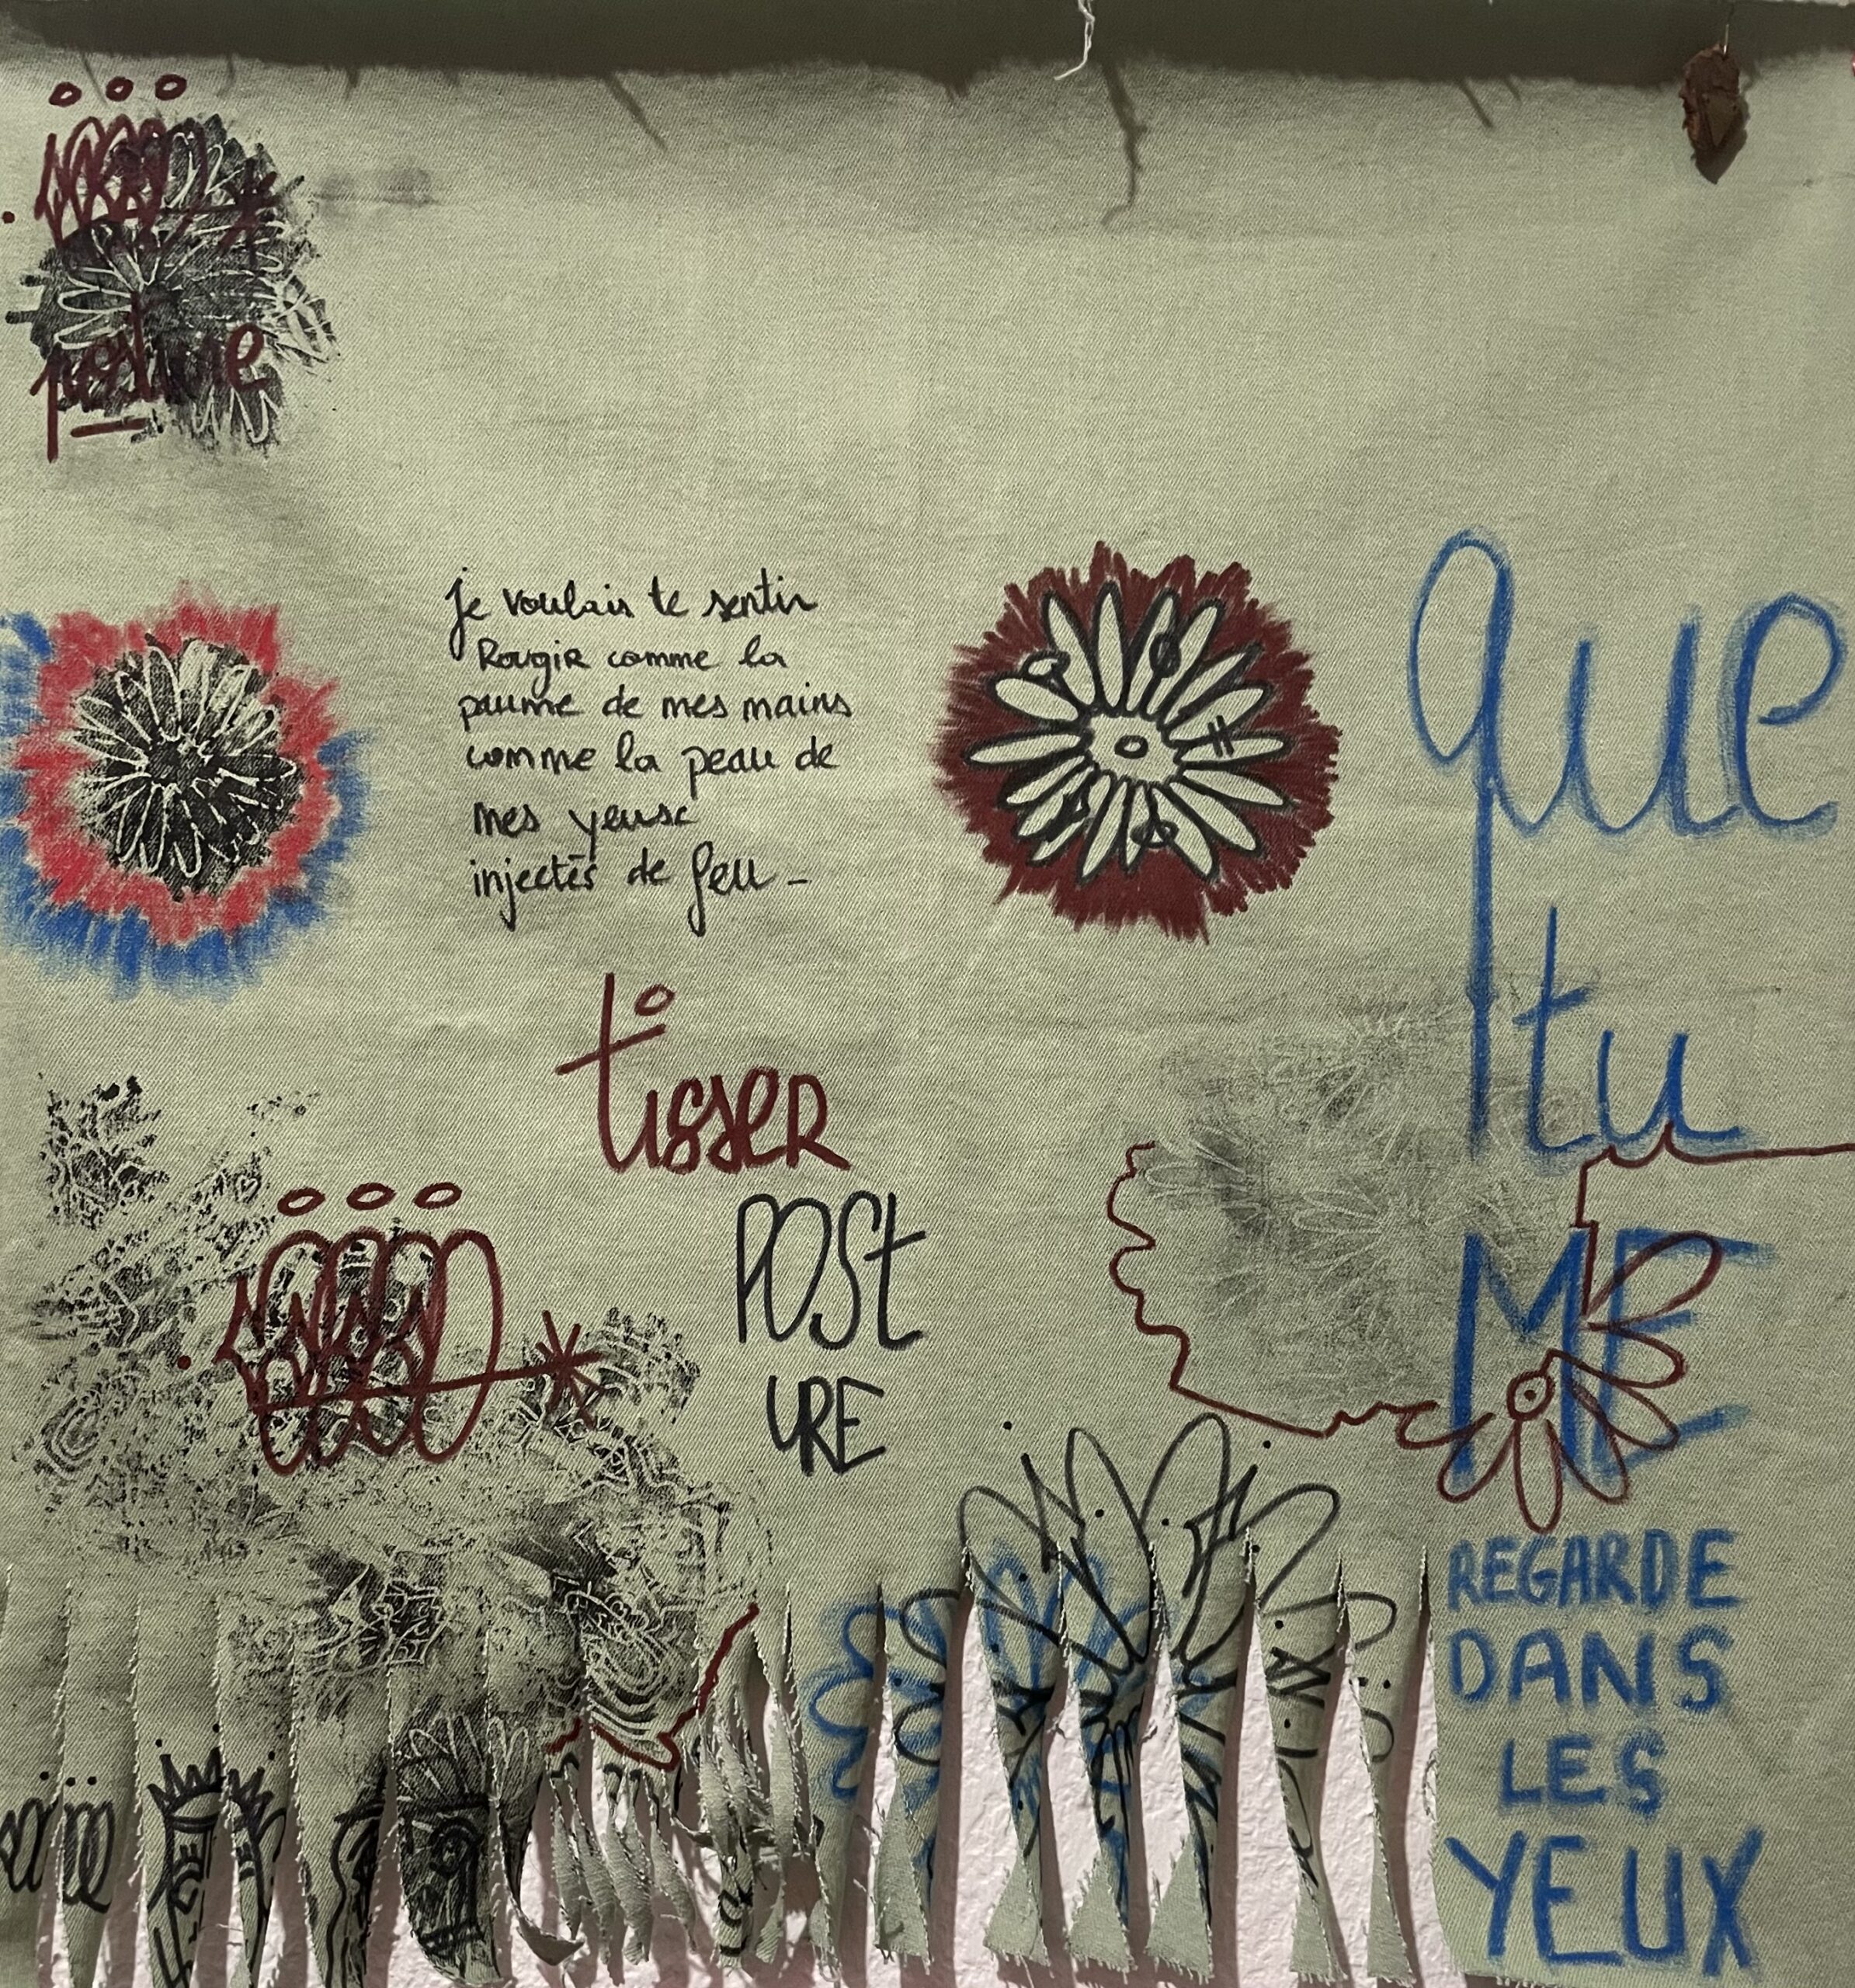 je voulais te sentir
Rougir comme la
paume de mes mains
comme la peau de
mes yeux
injectés de feu_
tisser
POSt
URE
que
tu
ME
REGARDE
DANS
LES
YEUX